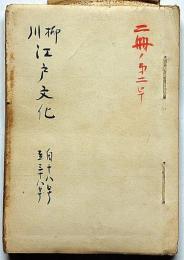 二冊ノ第二号
川柳江戸文化
自十八号
至三十八号